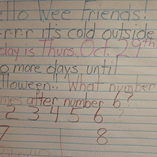 Hello Nee Friends!
r-r-r-r its cold outside
day is Thurs. Oct. 29th
o more days until
lloween.. What number
mes after number 6?
2 3 4 5 6
7 8